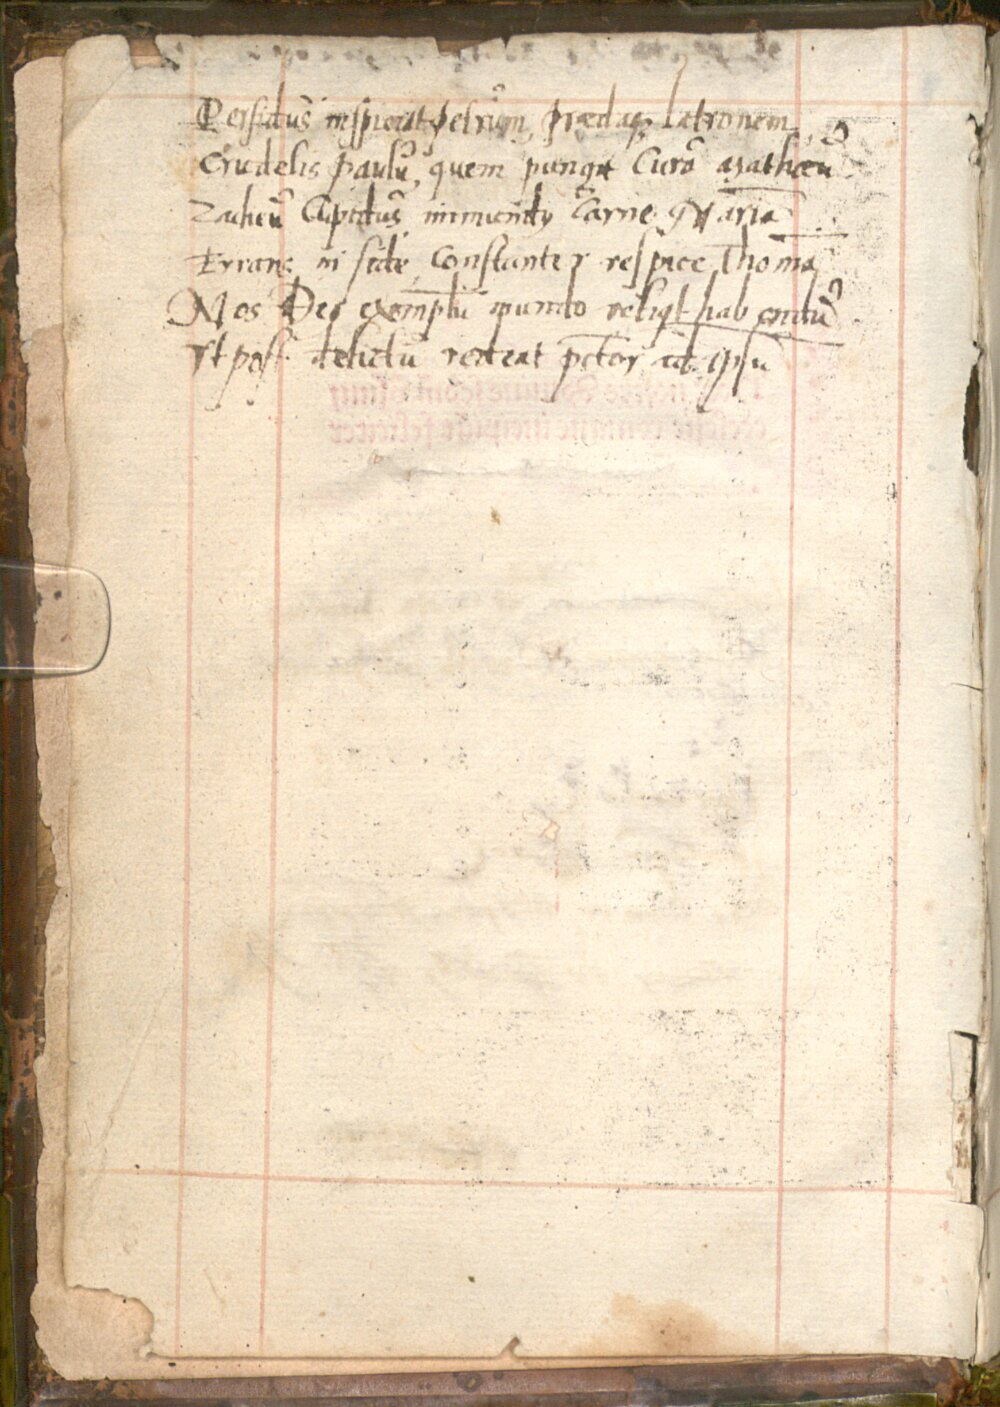 Perfidus inspiciat petrum, prædaq; latronem
Crudelis paulũ, quem pungit Cura matthæũ
Zacheũ Cupidus, immundq carne Mariã
Errans in fide, Constanter respice Thomã
Nos Deo exemplũ mundo reliqt habendũ
Vt post delictũ redeat pctor ad ipsũ